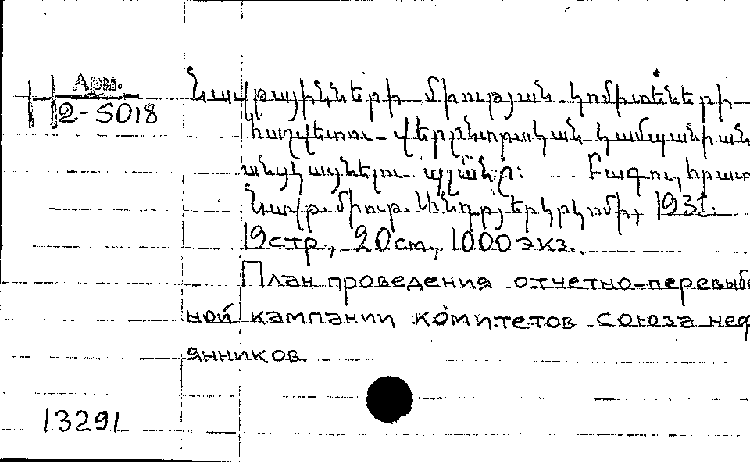 Арм.
2-5018
Նավթայիններրի միության կոմիտեների
հաշվետու-վերընտրական կամպանիան
անցկացնելու պլանը: Բագու, հրատ
Նավթ. միութ. Կենտր. յերկրկոմի, 1931.
19стр., 20см., 1000экз.
План проведения отчетно-перевыбо
ной кампании комитетов союза неф
янников
13291